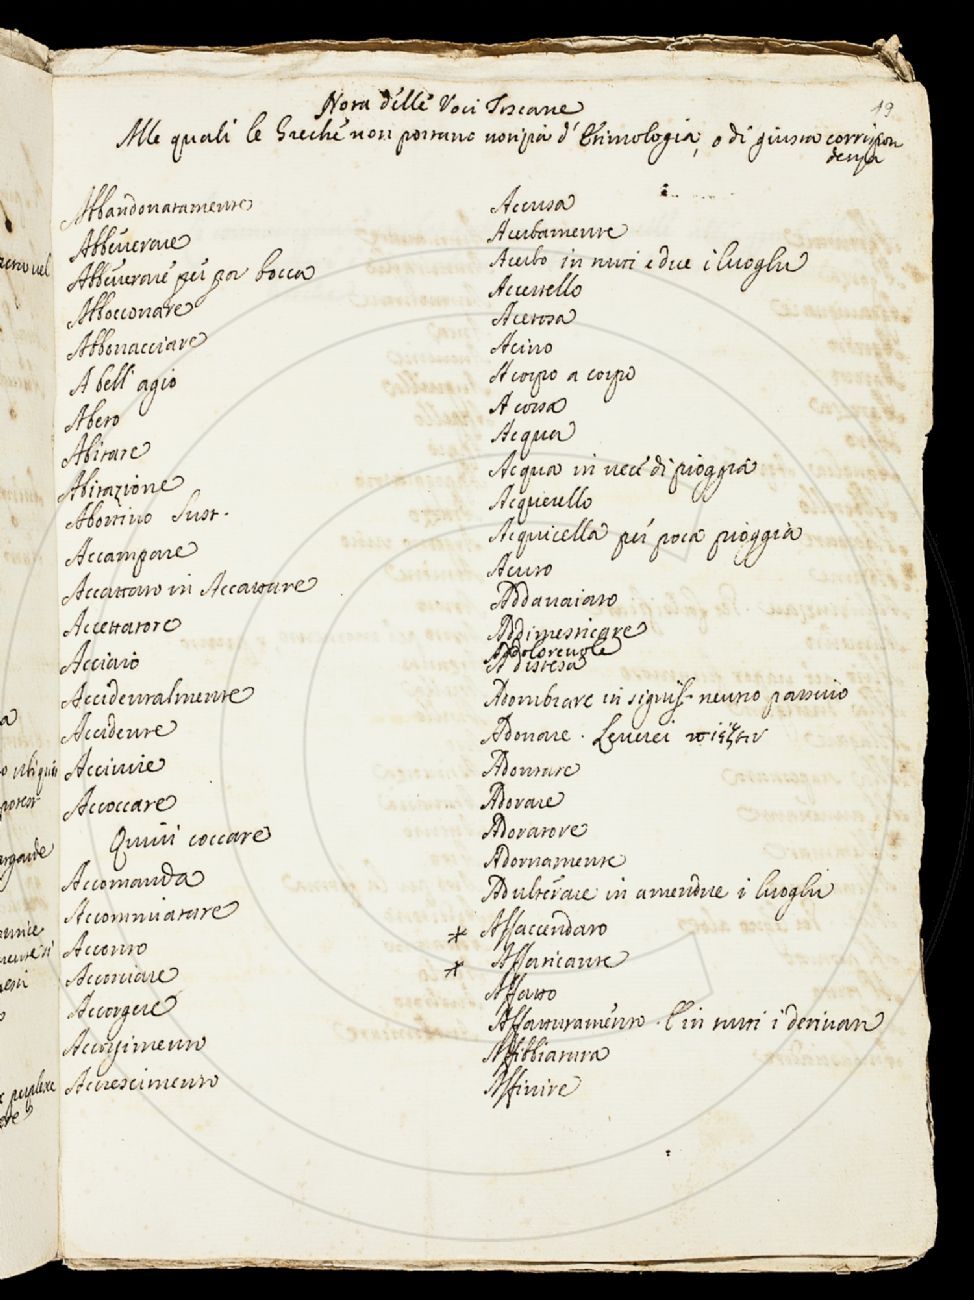 19
Nota delle Voci Toscane
Alle quali le Greche non portano notizia d'Etimologia, o di giusta corrispon
denza
Abbandonatamente
Abbeverare
Abbeverare per por bocca
Abboccare
Abbonacciare
A bell' agio
Abero
Abitare
Abitazione
Abortivo Sust.
Accampare
Accattato in Accattare
Accettatore
Acciaio
Accidentalmente
Accidente
Accoccare
Quivi coccare
Accomanda
Accommiatare
Acconto
Accorciare
Accorgere
Accorgimento
Accrescimento
Accusa
Acerbamente
Acerbo in tutti e due i luoghi
Acertello
Acetosa
Acino
A corpo a corpo
A corsa
Acqua
Acqua in vece di pioggia
Acquerello
Acquicella per poca pioggia
Acuto
Addanaiato
Addimesticare
Addolorevole
Adistesa
Adombrare in signif. neutro passivo
Adonare. Leverei
Adontare
Adorare
Adoratore
Adornamente
Adulterare in amendue i luoghi
* Affaccendato
* Affaticante
Affatto
Affatturamento. E in tutti i derivati
Affibbiatura
Affinire